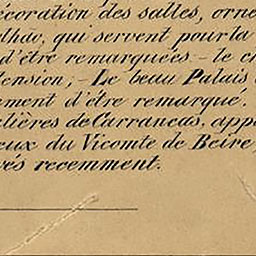 écoration des salles, orne
lhão, qui servent pour la
d'être remarquées. - le c
ension; - Le beau Palais
ement d'être remarqué.
lières de Carrancas, app
eux du Vicomte de Beire,
vés recemment.